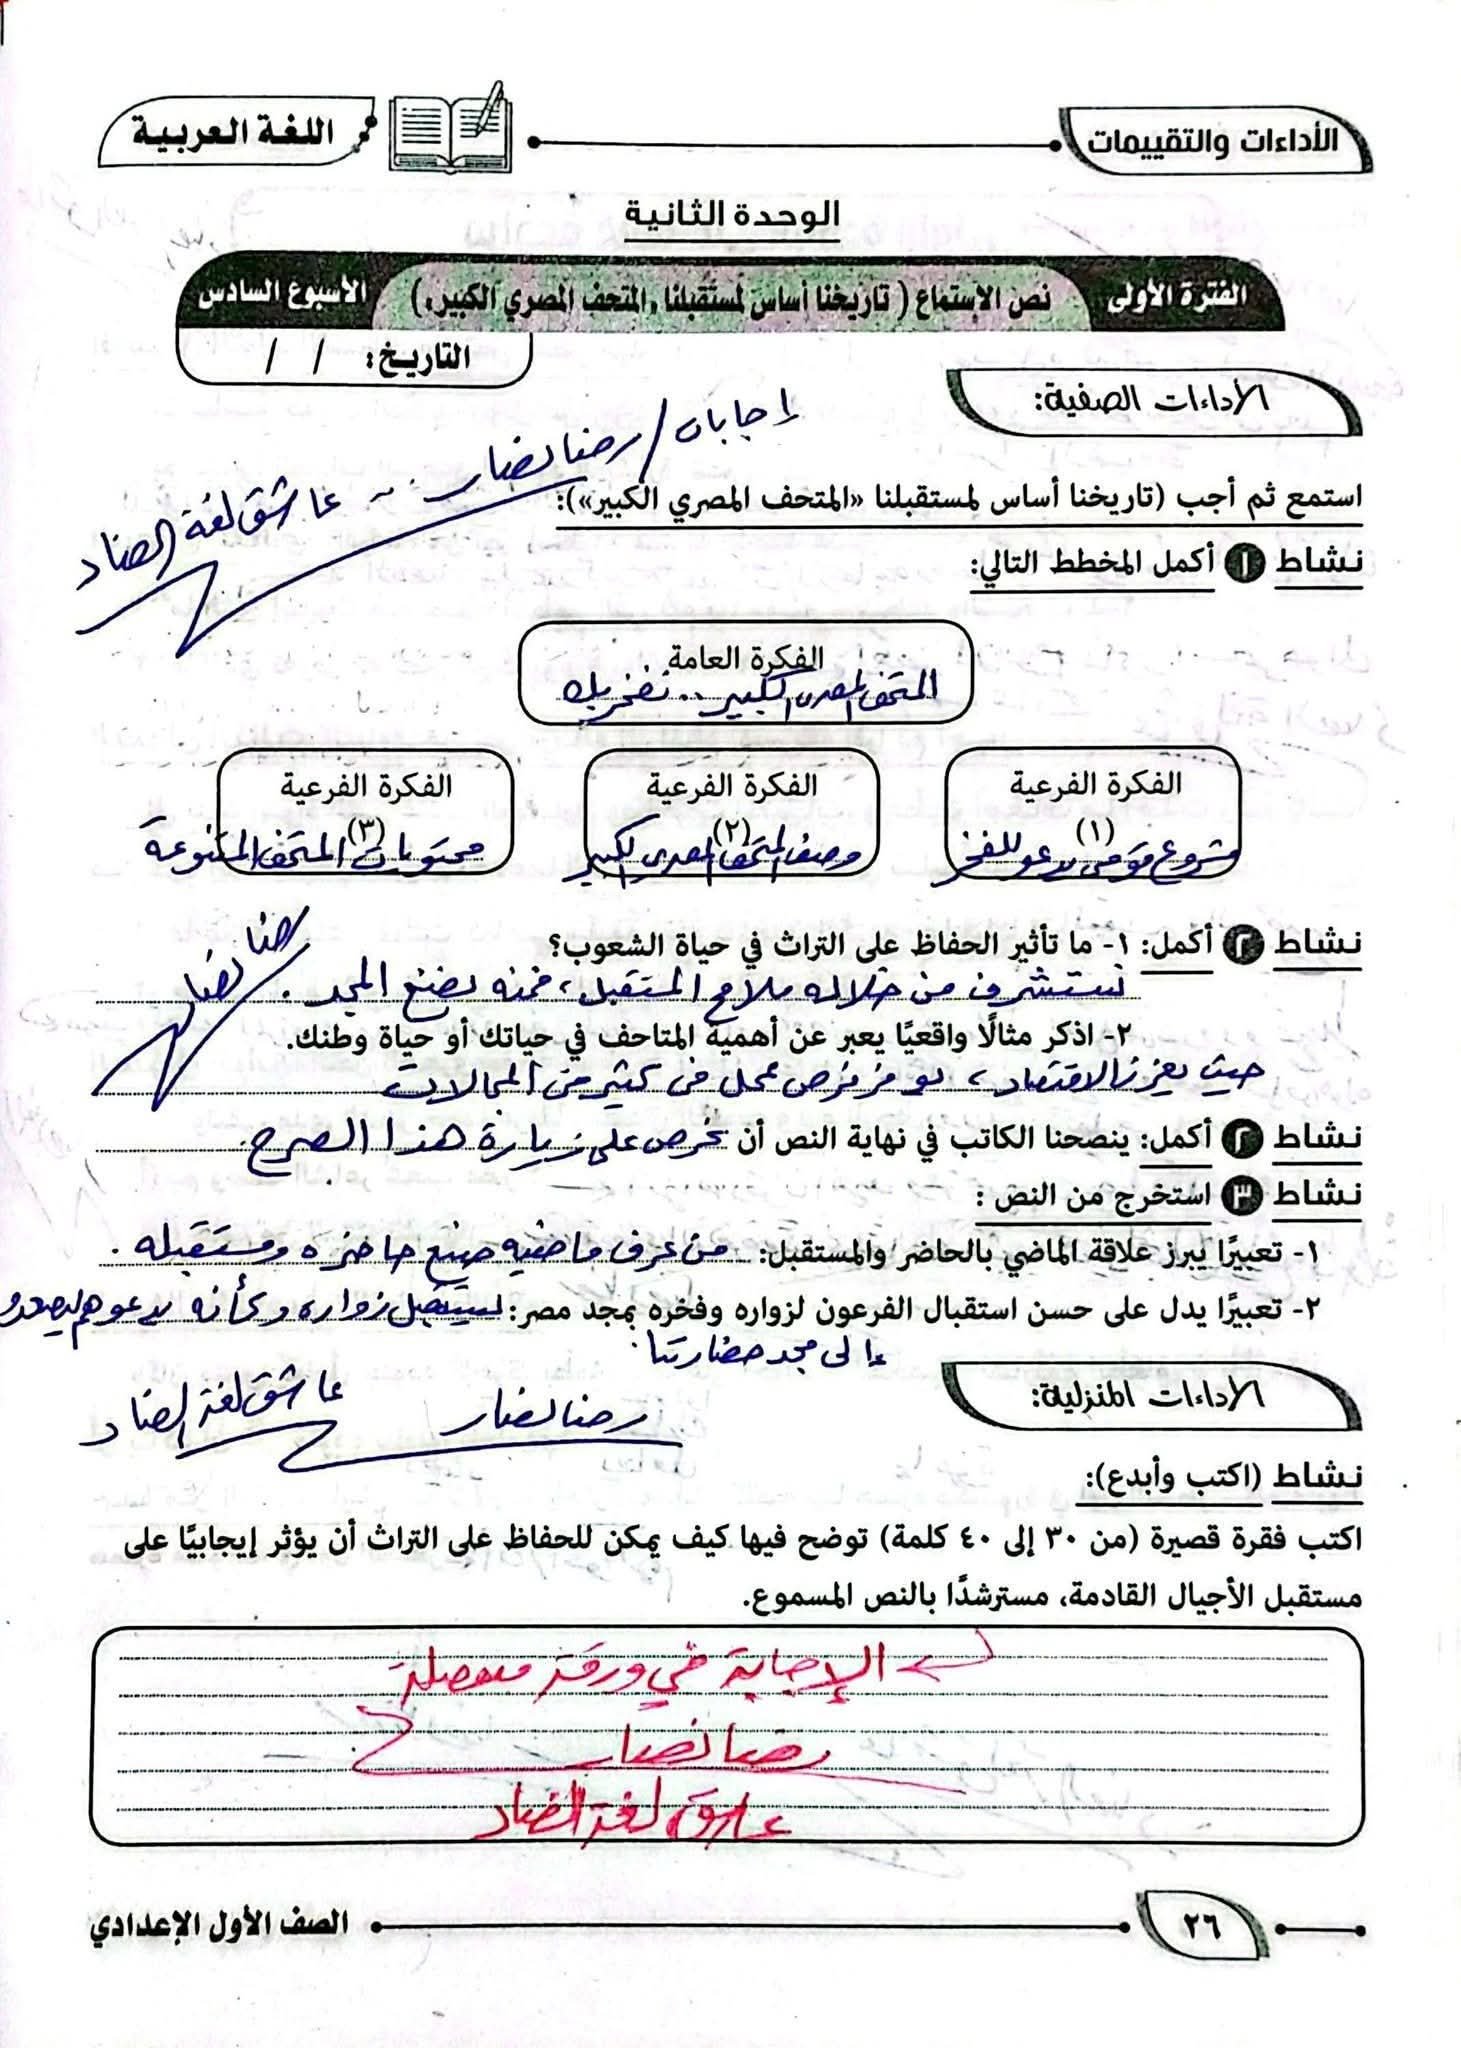 الأداءات والتقييمات
اللغة العربية
الوحدة الثانية
الفترة الأولى
نص الاستماع ( تاريخنا أساس لمستقبلنا «المتحف المصري الكبير» )
الأسبوع السادس
التاريخ: / /
الأداءات الصفية:
إجابات / رضا نصار .. عاشق لغة الضاد
استمع ثم أجب (تاريخنا أساس لمستقبلنا «المتحف المصري الكبير»):
نشاط ١ أكمل المخطط التالي:
الفكرة العامة
المتحف المصرى الكبير .. نفخر بك
الفكرة الفرعية
(١)
مشروع قومى يدعو للفخر
الفكرة الفرعية
(٢)
وصف المتحف المصرى الكبير
الفكرة الفرعية
(٣)
محتويات المتحف المتنوعة
نشاط ٢ أكمل: ١- ما تأثير الحفاظ على التراث في حياة الشعوب؟
نستشرف من خلاله ملامح المستقبل، فمنه نصنع المجد .
رضا نصار
٢- اذكر مثالًا واقعيًا يعبر عن أهمية المتاحف في حياتك أو حياة وطنك.
حيث يعزز الاقتصاد، يوفر فرص عمل فى كثير من المجالات
نشاط ٢ أكمل: ينصحنا الكاتب في نهاية النص أن نحرص على زيارة هذا الصرح .
نشاط ٣ استخرج من النص :
١- تعبيرًا يبرز علاقة الماضي بالحاضر والمستقبل: من عرف ماضيه صنع حاضره ومستقبله .
٢- تعبيرًا يدل على حسن استقبال الفرعون لزواره وفخره بمجد مصر: ليستقبل زواره وكأنه يدعوهم ليصعدوا
إلى مجد حضارتنا .
الأداءات المنزلية:
رضا نصار
عاشق لغة الضاد
نشاط (اكتب وأبدع):
اكتب فقرة قصيرة (من ٣٠ إلى ٤٠ كلمة) توضح فيها كيف يمكن للحفاظ على التراث أن يؤثر إيجابيًا على
مستقبل الأجيال القادمة، مسترشدًا بالنص المسموع.
الإجابة في ورقة منفصلة
رضا نصار
عاشق لغة الضاد
٢٦
الصف الأول الإعدادي